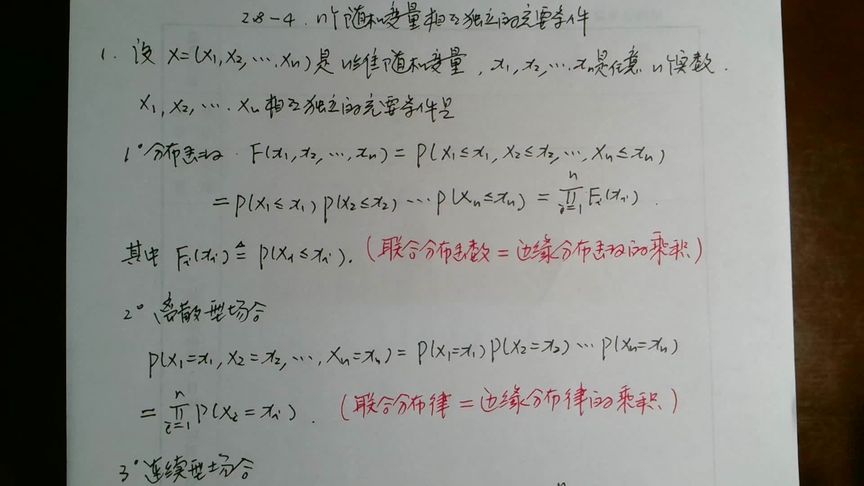 2.8-4. n个随机变量相互独立的充要条件
1. 设 X=(X₁,X₂,…,Xₙ)是n维随机变量,x₁,x₂,…xₙ是任意n个实数.
X₁,X₂,…,Xₙ相互独立的充要条件是
1° 分布函数. F(x₁,x₂,…,xₙ)=P(X₁≤x₁,X₂≤x₂,…,Xₙ≤xₙ)
=P(X₁≤x₁)P(X₂≤x₂)…P(Xₙ≤xₙ)=∏ⁿᵢ₌₁Fᵢ(xᵢ).
其中 Fᵢ(xᵢ)≜P(Xᵢ≤xᵢ).(联合分布函数=边缘分布函数的乘积)
2° 离散型场合
P(X₁=x₁,X₂=x₂,…,Xₙ=xₙ)=P(X₁=x₁)P(X₂=x₂)…P(Xₙ=xₙ)
=∏ⁿᵢ₌₁P(Xᵢ=xᵢ).(联合分布律=边缘分布律的乘积)
3° 连续型场合